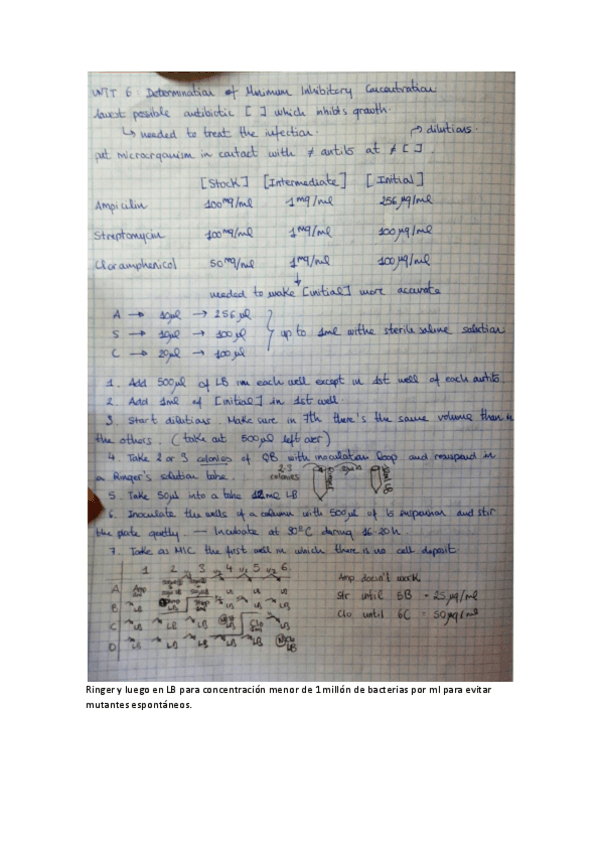 UNIT 6: Determination of Minimum Inhibitory Concentration
lowest possible antibiotic [ ] which inhibits growth.
↳ needed to treat the infection. → dilutions.
put microorganism in contact with ≠ antibs at ≠ [ ].
[Stock] [Intermediate] [Initial]
Ampicilin 100 mg/ml 1 mg/ml 256 µg/ml
Streptomycin 100 mg/ml 1 mg/ml 100 µg/ml
Cloramphenicol 50 mg/ml 1 mg/ml 100 µg/ml
needed to make [initial] more accurate
A → 10µl → 256 µl
S → 10µl → 100 µl } up to 1ml withe sterile saline solution
C → 20µl → 100 µl
1. Add 500µl of LB in each well except in 1st well of each antib.
2. Add 1ml of [initial] in 1st well.
3. Start dilutions. Make sure in 7th there's the same volume than in
the others. (take out 500µl left over)
4. Take 2 or 3 colonies of QB with inoculation loop and resuspend in
a Ringer's solution tube. 2-3 colonies Ringer 50µl LB
5. Take 50µl into a tube 12ml LB
6. Inoculate the wells of a column with 500µl of 15 suspension and stir
the plate gently. — Incubate at 30ºC during 16-20h.
7. Take as MIC the first well in which there is no cell deposit.
1 2 3 4 5 6
A Amp LB LB LB
B LB LB LB LB LB
C LB LB LB Clo LB
D LB LB LB LB LB
Amp doesn't work
Str until 5B = 25 µg/ml
Clo until 6C = 50 µg/ml
Ringer y luego en LB para concentración menor de 1 millón de bacterias por ml para evitar
mutantes espontáneos.